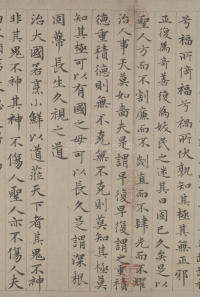 兮福所倚福兮禍所伏孰知其極其無正邪
正復為奇善復為訞民之迷其日固已久矣是以
聖人方而不割廉而不劌直而不肆光而不耀
治人事天莫如嗇夫是謂早復早復謂之重積
德重積德則無不克無不克則莫知其極莫
知其極可以有國之母可以長久是謂深根
固蔕長生久視之道
治大國若烹小鮮以道莅天下者其鬼不神
非其鬼不神其神不傷聖人亦不傷人夫